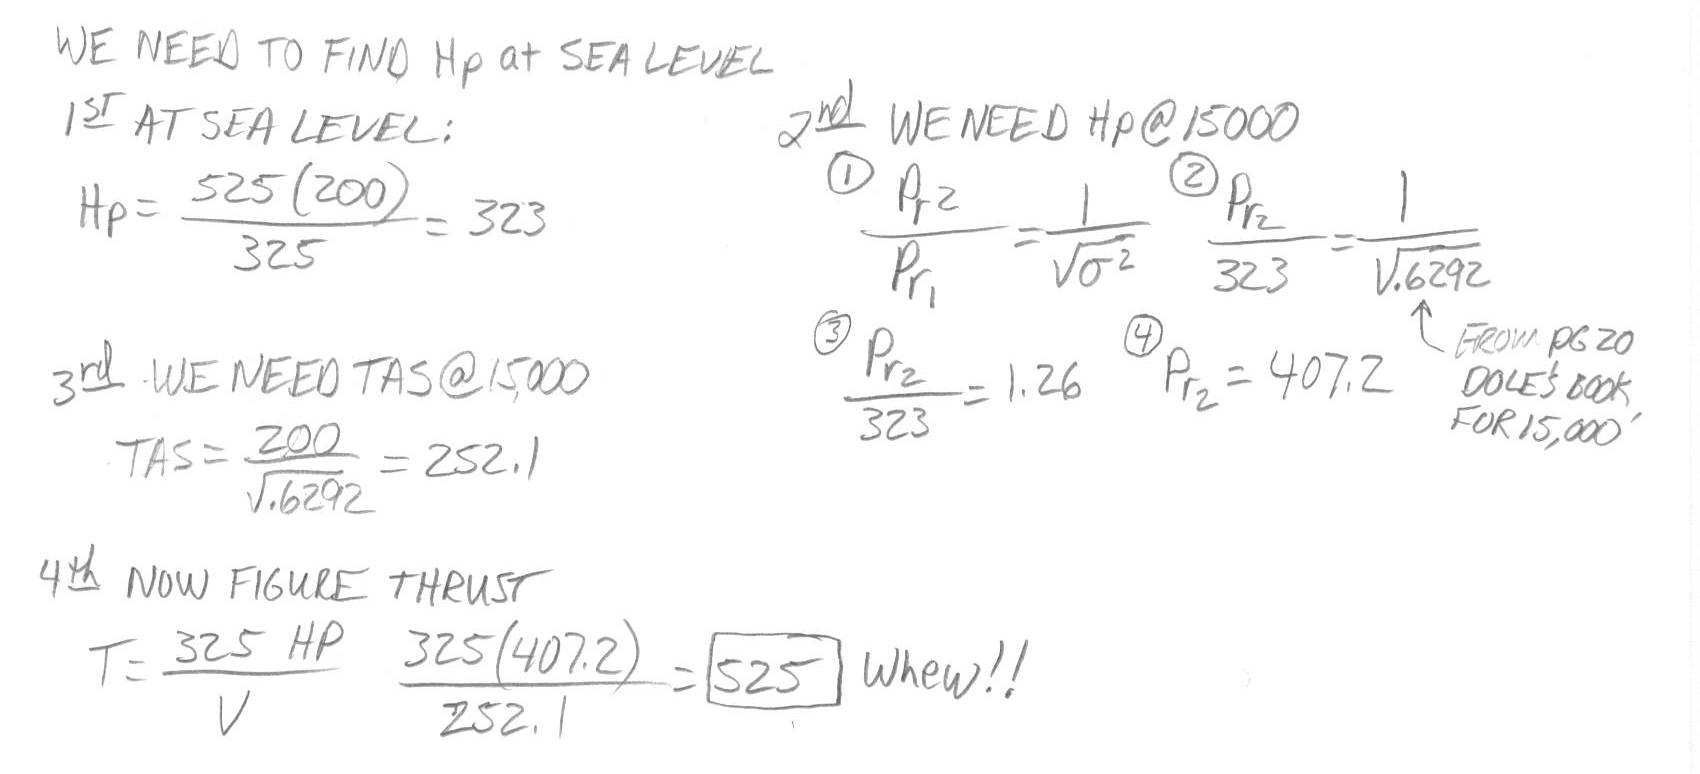 WE NEED TO FIND Hp at SEA LEVEL
1ST AT SEA LEVEL:
Hp = 525(200) / 325 = 323
2nd WE NEED Hp @ 15000
① Pr2 / Pr1 = 1 / √σ2
② Pr2 / 323 = 1 / √.6292
FROM PG 20
DOLE'S BOOK
FOR 15,000'
③ Pr2 / 323 = 1.26
④ Pr2 = 407.2
3rd WE NEED TAS @ 15,000
TAS = 200 / √.6292 = 252.1
4th NOW FIGURE THRUST
T = 325 HP / V 325(407.2) / 252.1 = 525 Whew!!